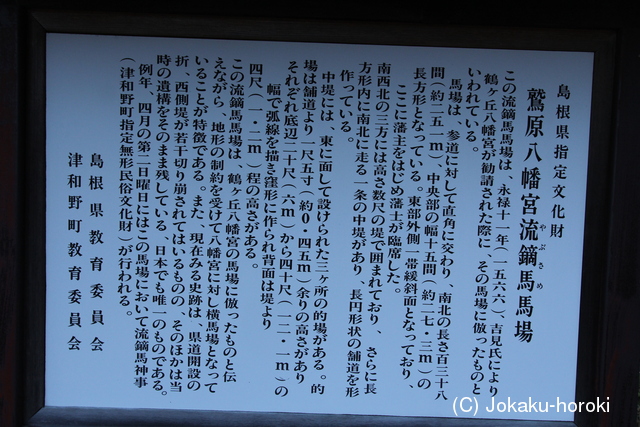 島根県指定文化財
鷲原八幡宮流鏑馬馬場
やぶさめ
この流鏑馬馬場は、永禄十一年(一五六六)、吉見氏により
鶴ヶ丘八幡宮が勧請された際に、その馬場に倣ったものと
いわれている。
馬場は、参道に対して直角に交わり、南北の長さ百三十八
間(約二五一m)、中央部の幅十五間(約二七・三m)の
長方形となっている。東部外側一帯緩斜面となっており、
ここに藩主をはじめ藩士が臨席した。
南西北の三方には高さ数尺の堤で囲まれており、さらに長
方形内に南北に走る一条の中堤があり、長円形状の舗道を形
作っている。
中堤には、東に面して設けられた三ヶ所の的場がある。的
場は舗道より一尺五寸(約0・四五m)余りの高さがあり
それぞれ底辺二十尺(六m)から四十尺(一二・一m)の
幅で弧線を描き窪形に作られ背面は堤より
四尺(一・二m)程の高さがある。
この流鏑馬馬場は、鶴ヶ丘八幡宮の馬場に倣ったものと伝
えながら、地形の制約を受けて八幡宮に対し横馬場となって
いることが特徴である。また、現在みる史跡は、県道開設の
折、西側堤が若干切り崩されてはいるものの、そのほかは当
時の遺構をそのまま残している、日本でも唯一のものである。
例年、四月の第二日曜日にはこの馬場において流鏑馬神事
(津和野町指定無形民俗文化財)が行われる。
島根県教育委員会
津和野町教育委員会
(C) Jokaku-horoki